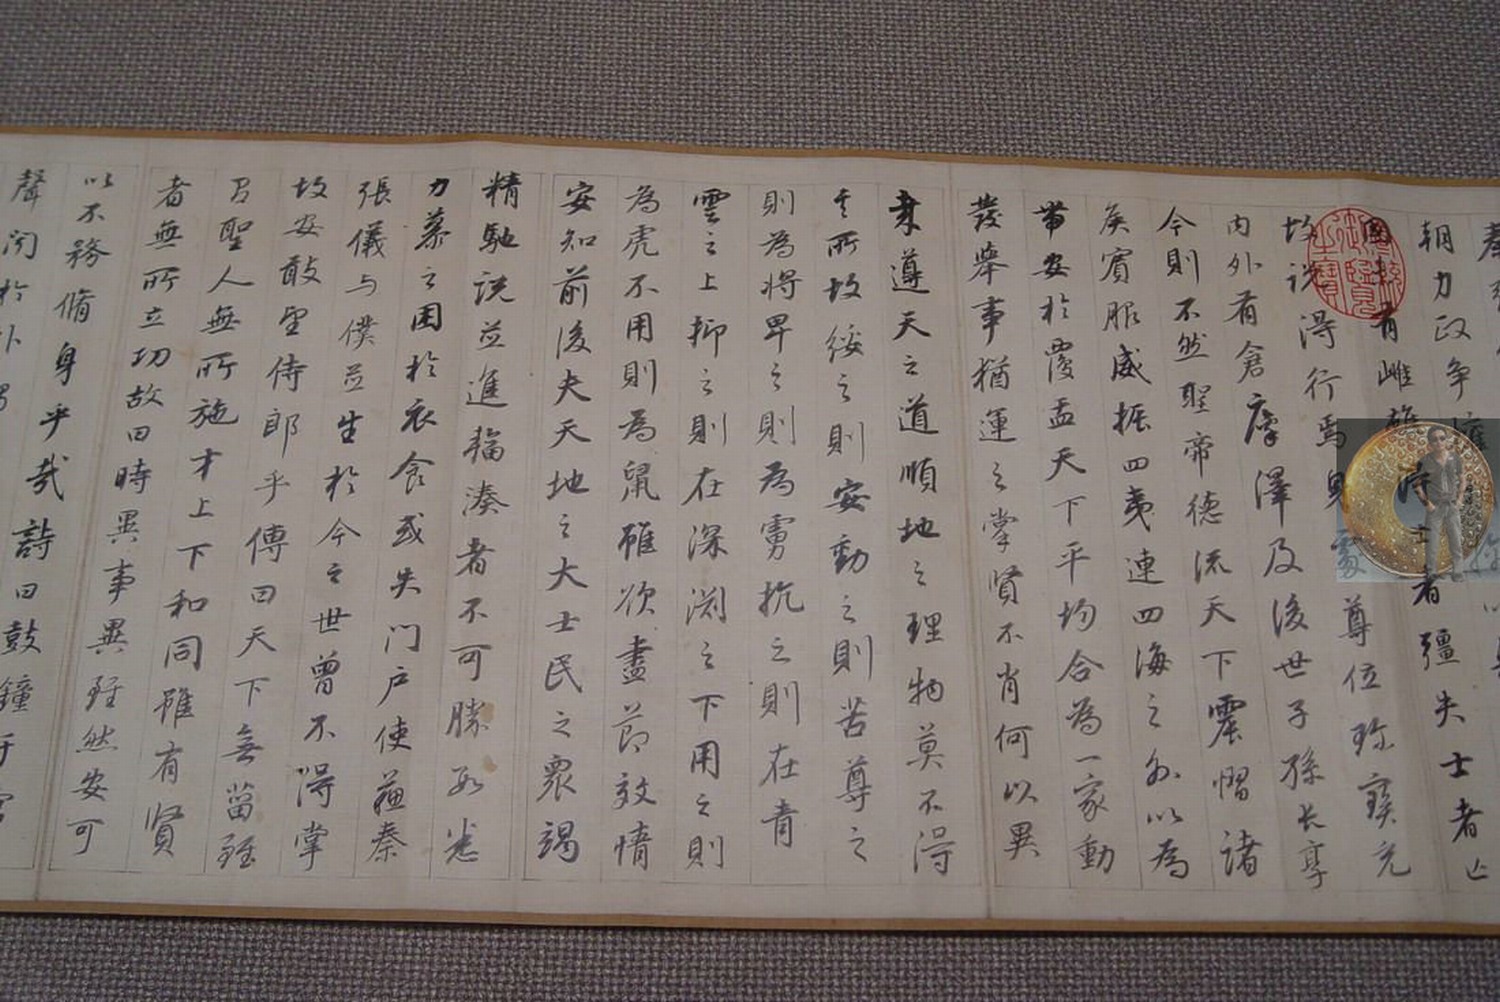 朝力政争權
國未有雌雄得士者彊失士者亡
故說得行焉身處尊位珎寳充
內外有倉廩澤及後世子孫長享
今則不然聖帝德流天下震慴諸
矦賓服威振四夷連四海之外以為
帶安於覆盂天下平均合為一家動
發舉事猶運之掌賢不肖何以異
哉遵天之道順地之理物莫不得
其所故綏之則安動之則苦尊之
則為將卑之則為虜抗之則在青
雲之上抑之則在深淵之下用之則
為虎不用則為鼠雖欲盡節效情
安知前後夫天地之大士民之衆竭
精馳說並進輻湊者不可勝數悉
力慕之困於衣食或失門户使蘇秦
張儀与僕並生於今之世曾不得掌
故安敢望侍郎乎傳曰天下無菑雖
有聖人無所施才上下和同雖有賢
者無所立功故曰時異事異雖然安可
以不務脩身乎哉詩曰鼓鐘于宮
聲聞於外